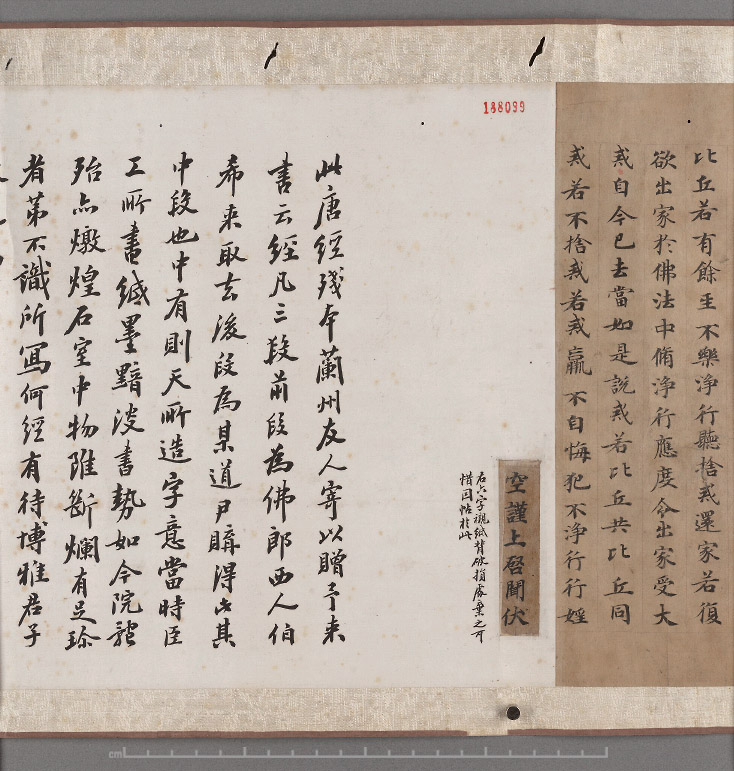 比丘若有餘王不樂淨行聽捨戒還家若復
欲出家於佛法中脩淨行應度令出家受大
戒自今已去當如是說戒若比丘共比丘同
戒若不捨戒若戒羸不自悔犯不淨行行婬
188099
空謹上啓聞伏
右六字襯紙背破損處棄之可
惜因帖於此
此唐經殘本蘭州友人寄以贈予來
書云經凡三段前段為佛郎西人伯
希來取去後段為某道尹購得此其
中段也中有則天所造字意當時臣
工所書紙墨黯淡書勢如今院體
殆亦燉煌石室中物雖斷爛有足珍
者第不識所寫何經有待博雅君子
cm